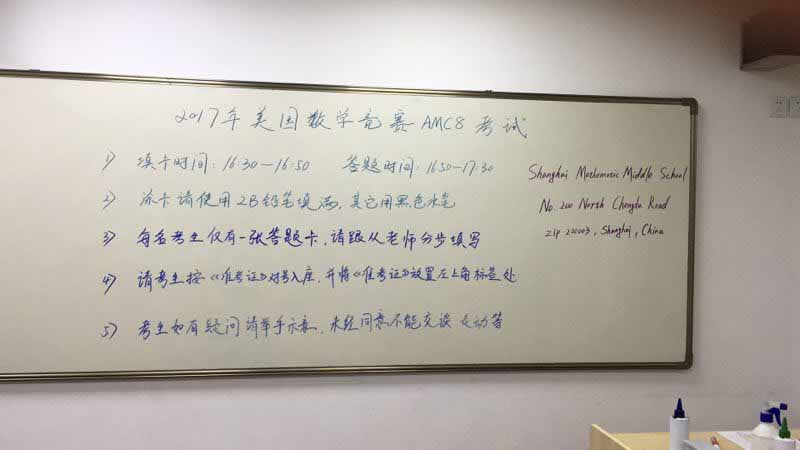 2017年美国数学竞赛AMC8考试
1) 填卡时间:16:30-16:50 答题时间:1650-17:30
2) 涂卡请使用2B铅笔填满,其它用黑色水笔
3) 每名考生仅有一张答题卡,请跟从老师分步填写
4) 请考生按《准考证》对号入座,并将《准考证》放置左上角标签处
5) 考生如有疑问请举手示意,未经同意不能交谈 走动等
Shanghai Middle School
No. 200 North Chengdu Road
zip 200003, Shanghai, China